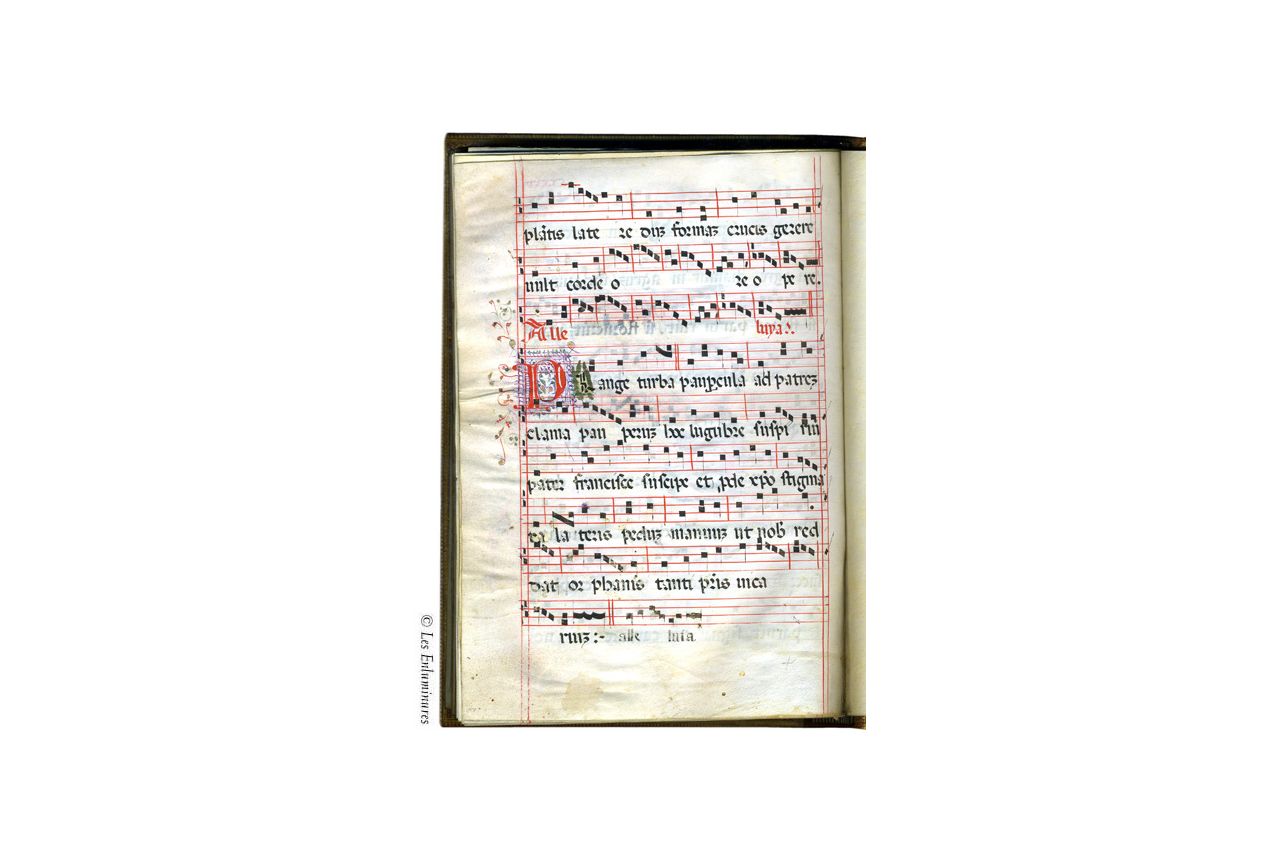 plãtis late re duȝ formaȝ crucis gerere
uult corde o re o pe re.
Alle luya:.
PLange turba paup̱cula ad patreȝ
clama pau peruȝ hoc lugubre suspi riũ
pater francisce suscipe et p̱de xp̃o stigma
ta la teris peduȝ manuuȝ ut nob̾ red
dat or phanis tanti pr̃is uica
riuȝ:- alle luia
© Les Enluminures